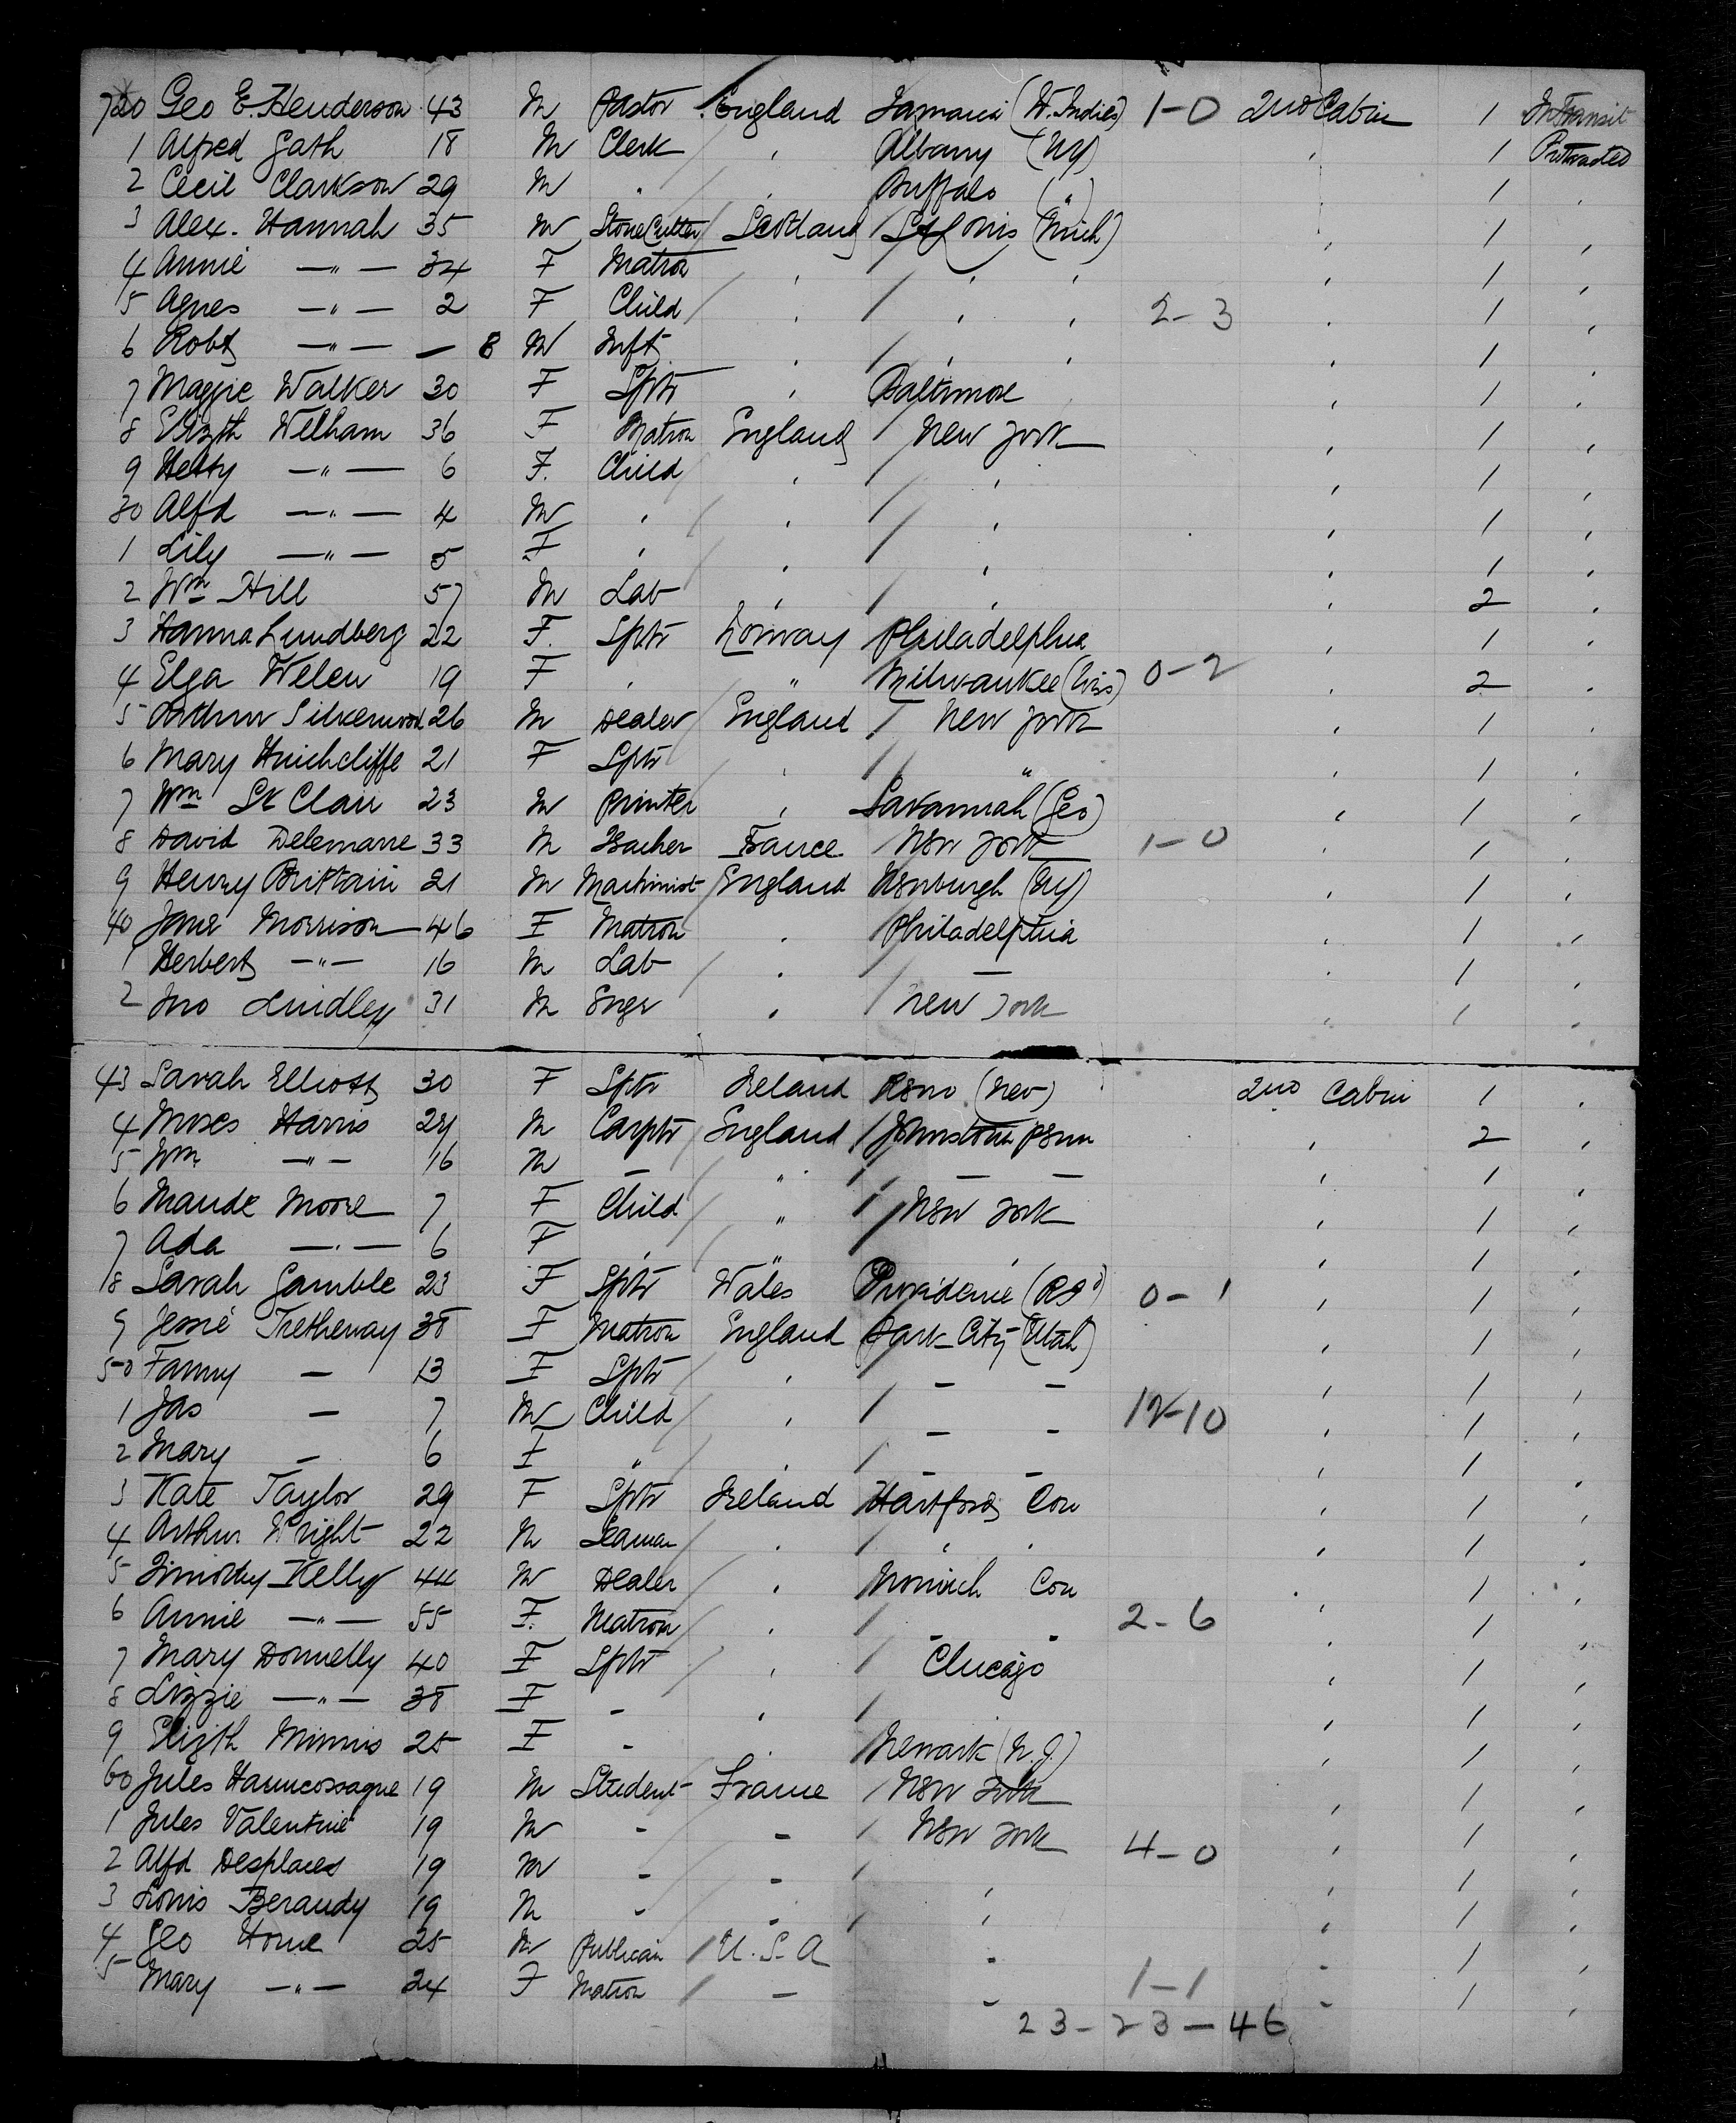 720 Geo E. Henderson 43 M Pastor England Jamaica (W. Indies) 1-0 2nd Cabin 1 In Transit
1 Alfred Gath 18 M Clerk " Albany (NY) " 1 Protracted
2 Cecil Clarkson 29 M " " Buffalo (") " 1
3 Alex. Hannah 35 M Stone Cutter Scotland St Louis (Mich) " 1 "
4 Annie —"— 34 F Matron " " " " 1 "
5 Agnes —"— 2 F Child " " " 2-3 " 1 "
6 Robt —"— — 8 M Inft " " " " 1 "
7 Maggie Walker 30 F Sptr " Baltimore " 1 "
8 Elizth Welham 36 F Matron England New York " 1 "
9 Hetty —"— 6 F. Child " " " 1 "
30 Alfd —"— 4 M " " " " 1 "
1 Lily —"— 5 F " " " " 1 "
2 Wm Hill 57 M Lab " " " 2 "
3 Hanna Lundberg 22 F. Sptr Norway Philadelphia " 1 "
4 Elga Welen 19 F " " Milwaukee (Wis) 0-2 " 2 "
5 Arthur Silkenwood 26 M Dealer England New York " 1 "
6 Mary Hinchcliffe 21 F Sptr " " " 1 "
7 Wm St Clair 23 M Printer " Savannah (Geo) " 1 "
8 David Delemarre 33 M Teacher France New York 1-0 " 1 "
9 Henry Brittain 21 M Machinist England Newburgh (NY) " 1 "
40 Jane Morrison 46 F Matron " Philadelphia " 1 "
1 Herbert —"— 16 M Lab " — " 1 "
2 Jno Lindley 31 M Engr " New York " 1 "
43 Sarah Elliott 30 F Sptr Ireland Reno (Nev) 2nd Cabin 1 "
4 Moses Harris 24 M Carptr England Johnstown Penn " 2 "
5 Wm —"— 16 M — " — — " 1 "
6 Maude Moore 7 F Child " New York " 1 "
7 Ada —"— 6 F " " " " 1 "
8 Sarah Gamble 23 F Sptr Wales Providence (RI) 0-1 " 1 "
9 Jessie Tretheway 38 F Matron England Park City (Utah) " 1 "
50 Fanny — 13 F Sptr " — — " 1 "
1 Jas — 7 M Child " — — 12-10 " 1 "
2 Mary — 6 F " " — — " 1 "
3 Kate Taylor 29 F Sptr Ireland Hartford Con " 1 "
4 Arthur Wright 22 M Seaman " " " " 1 "
5 Timothy Kelly 44 M Dealer " Norwich Con " 1 "
6 Annie —"— 55 F. Matron " " " 2-6 " 1 "
7 Mary Donnelly 40 F Sptr " Chicago " 1 "
8 Lizzie —"— 38 F — " " 1 "
9 Elizth Minnis 25 F — " Newark (N.J.) " 1 "
60 Jules 19 M Student France New York " 1 "
1 Jules Valentine 19 M — — New York 4-0 " 1 "
2 Alfd Desplaces 19 M — — " 1 "
3 Louis Beraudy 19 M — — " " 1 "
4 Geo Horne 25 M Publican U.S.A — — 1 "
5 Mary —"— 24 F Matron — — 1-1 — 1 "
23-23-46